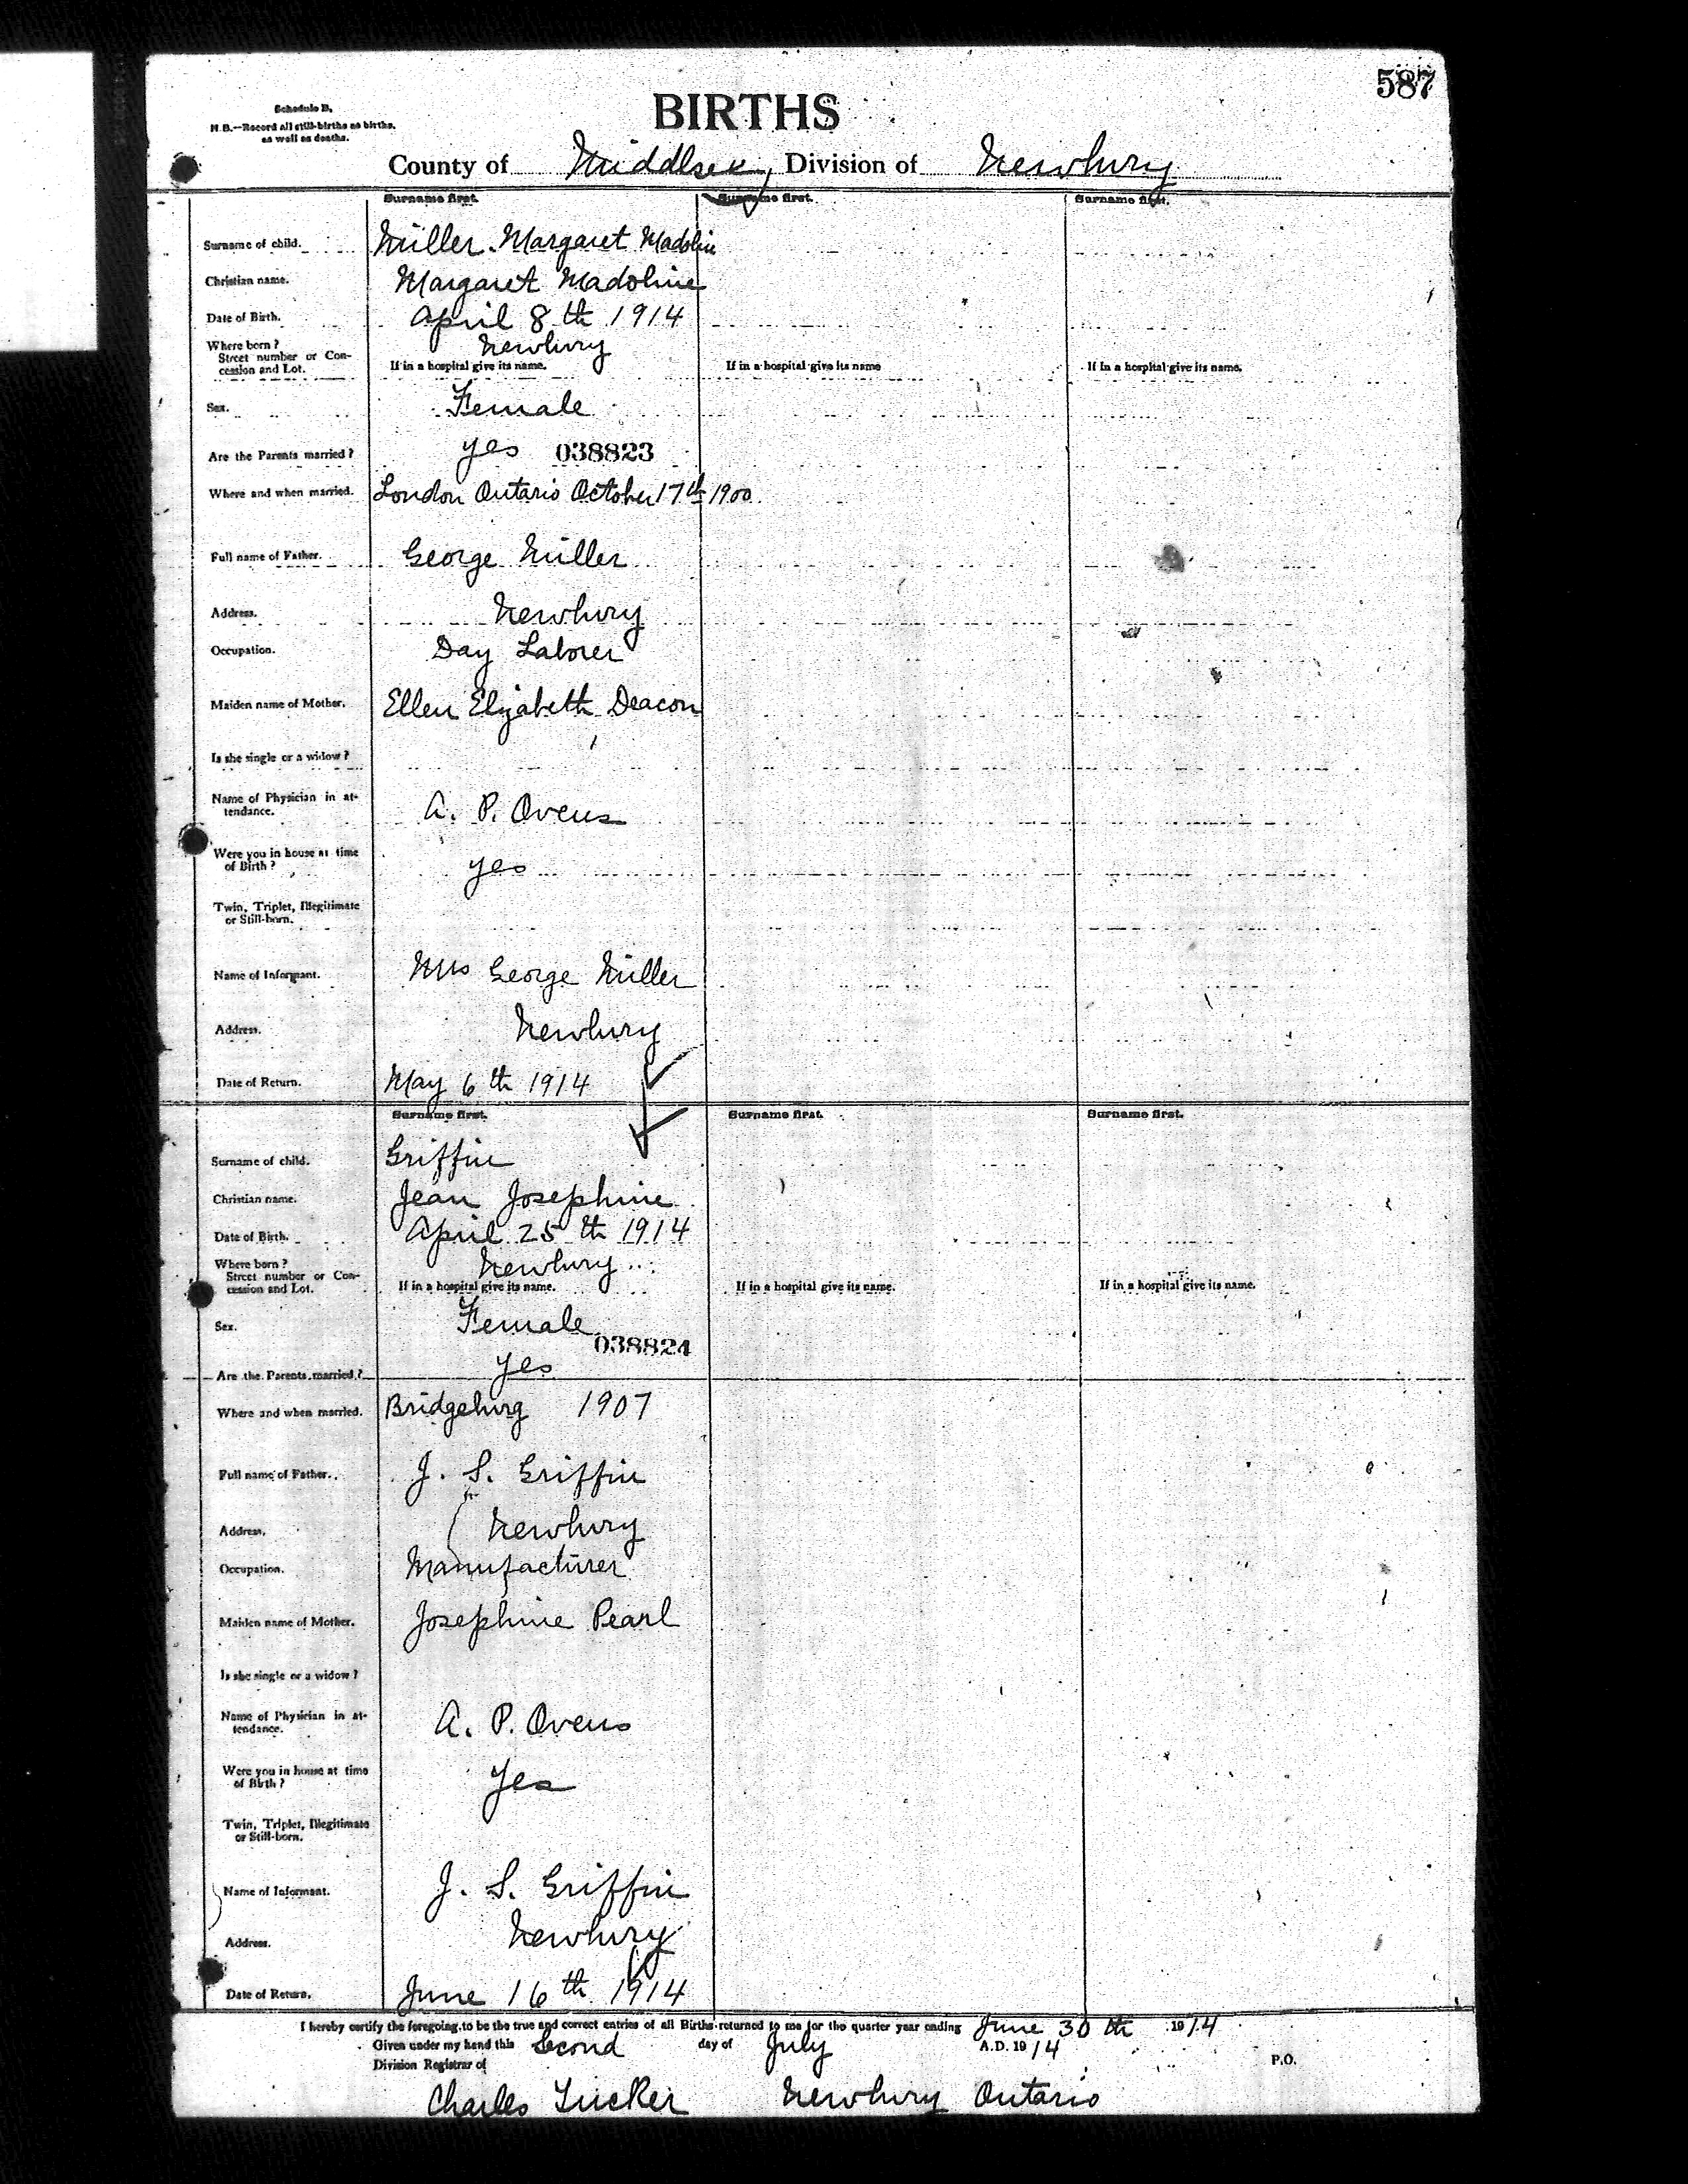 587
Schedule B.
N.B.—Record all still-births as births, as well as deaths.
BIRTHS
County of Middlsex, Division of Newbury
Surname first. Surname first. Surname first.
Surname of child. Miller. Margaret Madoline
Christian name. Margaret Madoline
Date of Birth. April 8th 1914
Where born? Newbury
Street number or Con-
cession and Lot. If in a hospital give its name. If in a hospital give its name If in a hospital give its name.
Sex. Female
Are the Parents married? yes 038823
Where and when married. London Ontario October 17th 1900
Full name of Father. George Miller
Address. Newbury
Occupation. Day Laborer
Maiden name of Mother. Ellen Elizabeth Deacon
Is she single or a widow?
Name of Physician in at-
tendance. A. P. Ovens
Were you in house at time
of Birth? yes
Twin, Triplet, Illegitimate
or Still-born.
Name of Informant. Mrs George Miller
Address. Newbury
Date of Return. May 6th 1914
Surname first. Surname first. Surname first.
Surname of child. Griffin
Christian name. Jean Josephine
Date of Birth. April 25th 1914
Where born? Newbury
Street number or Con-
cession and Lot. If in a hospital give its name. If in a hospital give its name. If in a hospital give its name.
Sex. Female
038824
Are the Parents married? yes
Where and when married. Bridgeburg 1907
Full name of Father. J. S. Griffin
Address. Newbury
Occupation. Manufacturer
Maiden name of Mother. Josephine Pearl
Is she single or a widow?
Name of Physician in at-
tendance. A. P. Ovens
Were you in house at time
of Birth? Yes
Twin, Triplet, Illegitimate
or Still-born.
Name of Informant. J. S. Griffin
Address. Newbury
Date of Return. June 16th 1914
I hereby certify the foregoing to be the true and correct entries of all Births returned to me for the quarter year ending June 30th 1914
Given under my hand this Second day of July A.D. 1914
Division Registrar of P.O.
Charles Tucker Newbury Ontario